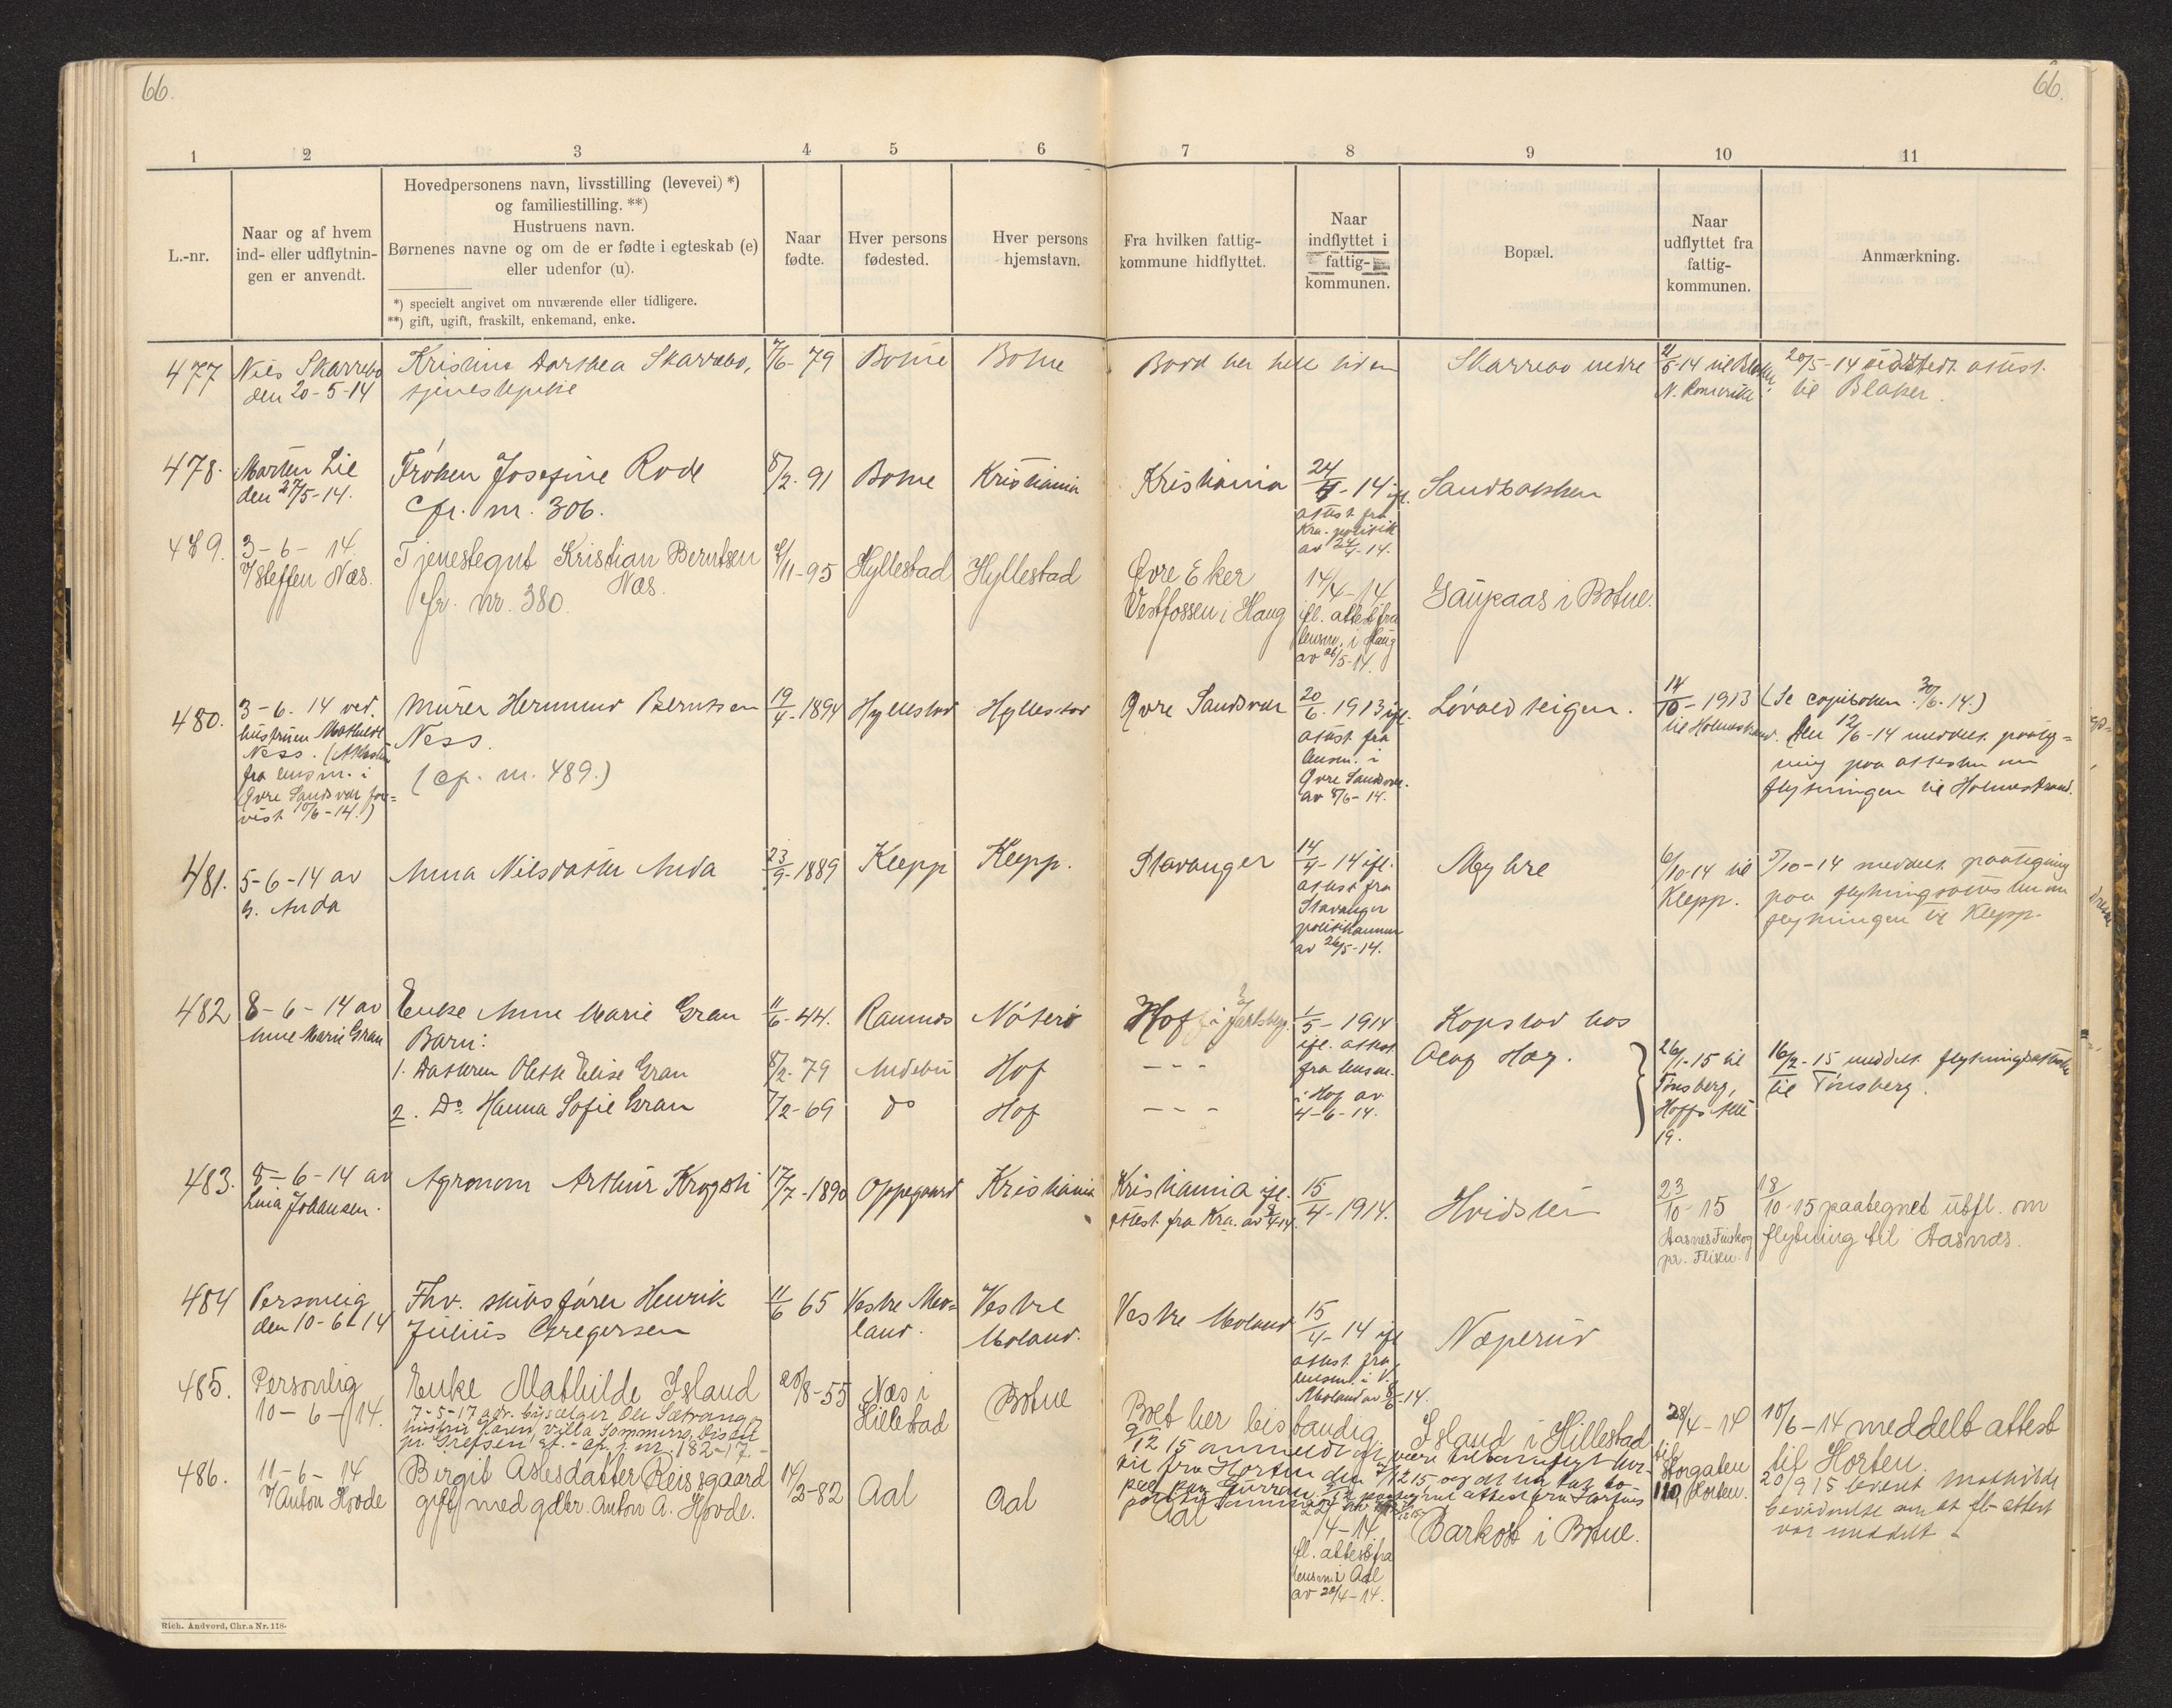 66.
66.
1 2 3 4 5 6 7 8 9 10 11
L.-nr.
Naar og af hvem
ind- eller udflytnin-
gen er anvendt.
Hovedpersonens navn, livsstilling (levevei) *)
og familiestilling. **)
Hustruens navn.
Børnenes navne og om de er fødte i egteskab (e)
eller udenfor (u).
*) specielt angivet om nuværende eller tidligere.
**) gift, ugift, fraskilt, enkemand, enke.
Naar
fødte.
Hver persons
fødested.
Hver persons
hjemstavn.
Fra hvilken fattig-
kommune hidflyttet.
Naar
indflyttet i
fattig-
kommunen.
Bopæl.
Naar
udflyttet fra
fattig-
kommunen.
Anmærkning.
477
Nils Skarrebo
den 20-5-14
Kristine Dorthea Skarrebo,
tjenestepike
7/6-79
Botne
Botne
Bodd her hele tiden
Skarrebo nedre
2/5-14 til Blaker
N. Romerike
20/5-14 utstedt attest
til Blaker.
478.
Morten Lie
den 27/5-14.
Frøken Josefine Rode
Cfr. nr. 306.
8/2-91
Botne
Kristiania
Kristiania
24/4-14 ifl.
attest fra
Kra. politik
av 24/4-14.
Sandbakken
479.
3-6-14.
v/ Steffen Næs.
Tjenestegut Kristian Berntsen
Næs.
cfr. nr. 380.
2/11-95
Hyllestad
Hyllestad
Øvre Eker
Vestfossen i Haug
14/4-14
ifl. attest fra
lensm. i Haug
av 26/5-14.
Gaupaas i Botne.
480.
3-6-14 ved.
hustruen Mathilde
Ness. (Attesten
fra lensm. i
Øvre Sandsvær fore-
vist 10/6-14.)
Murer Hermund Berntsen
Ness.
(cp. nr. 489.)
19/4-1894
Hyllestad
Hyllestad
Øvre Sandsvær
20/6-1913 ifl.
attest fra
lensm. i
Øvre Sandsvær.
av 8/6-14.
Løvaldteigen.
14/10-1913
til Holmestrand.
(Se copiboken 30/6-14.)
Den 12/6-14 meddelt paateg=
ning paa attesten om
flytningen til Holmestrand.
481.
5-6-14 av
G. Anda
Anna Nilsdatter Anda
23/9-1889
Klepp
Klepp.
Stavanger
14/4-14 ifl.
attest fra
Stavanger
politikammer
av 26/5-14.
Myhre
6/10-14 til
Klepp.
5/10-14 meddelt paategning
paa flytningsattesten om
flytningen til Klepp.
482
8-6-14 av
Anne Marie Gran
Enke Anne Marie Gran
Barn:
1. Datteren Olette Elise Gran
2. Do Hanna Sofie Gran
11/6-44.
8/2-79
7/2-69
Ramnes
Andebu
do
Nøterø
Hof
Hof
Hof i Jarlsberg.
- - -
- - -
1/5-1914
ifl. attest
fra lensm.
i Hof av
4-6-14.
Kopstad hos
Olaf Hag.
26/1-15 til
Tønsberg,
19.
16/2-15 meddelt flytningsattest
til Tønsberg.
483.
8-6-14 av
Lina Johansen.
Agronom Arthur Krogsti
17/7-1890
Oppegaard
Kristiania
Kristiania ifl.
attest fra Kra. av
15/4-1914.
Hvidstein
23/10-15
Aasnes Finskog
pr. Flisen.
18/10-15 paategnet utfl. om
flytning til Aasnæs.
484
Personlig
den 10-6-14
Fhv. skibsfører Henrik
Julius Gregersen
11/6 65
Vestre Mo=
land.
Vestre
Moland.
Vestre Moland
15/4-14 ifl
attest fra
lensm. i V.
Moland av 8/6-14.
Næperud
485.
Personlig
10-6-14.
Enke Mathilde Island
7-5-17 adr. bysælger Ole Sætrang
hustru Karen, villa Sommerro, Disen
pr. Grefsen st. - cp. j. nr. 182-17.
20/8-55
Næs i
Hillestad
Botne
Boet her bistandig.
Island i Hillestad
28/4-14
til
Storgaten
110, Horten.
10/6-14 meddelt attest
til Horten.
20/9 15 krevet Mathilde
bevidnelse om at fl-attest
var meddelt.
486.
11-6-14
v/ Anton Hovde
Birgit Aslesdatter Reissgaard
gift med gdbr. Anton A. Hovde.
14/2-82
Aal
Aal
Aal
/4-14
ifl. attest fra
lensm. i Aal
av 28/4-14.
Barkost i Botne.
Rich. Andvord, Chr.a Nr. 118.